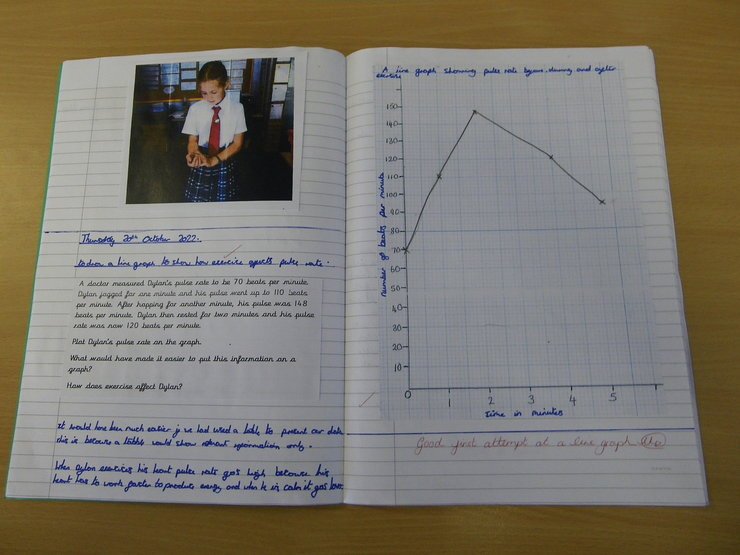 Thursday 20th October 2022.
to draw a line graph to show how exercise affects pulse rate.
A doctor measured Dylan's pulse rate to be 70 beats per minute.
Dylan jogged for one minute and his pulse went up to 110 beats
per minute. After hopping for another minute, his pulse was 148
beats per minute. Dylan then rested for two minutes and his pulse
rate was now 120 beats per minute.
Plot Dylan's pulse rate on the graph.
What would have made it easier to put this information on a
graph?
How does exercise affect Dylan?
It would have been much easier if we had used a table to present our data
this is because a table would show relevant information only.
When dylan exercises his heart pulse rate gos high because his
heart has to work faster to produce energy and when he is calm it gos lower
A line graph showing pulse rate before, during and after
exercise
Number of beats per minute
150
140
130
120
110
100
90
80
70
60
50
40
30
20
10
0 1 2 3 4 5
Time in minutes
Good first attempt at a line graph